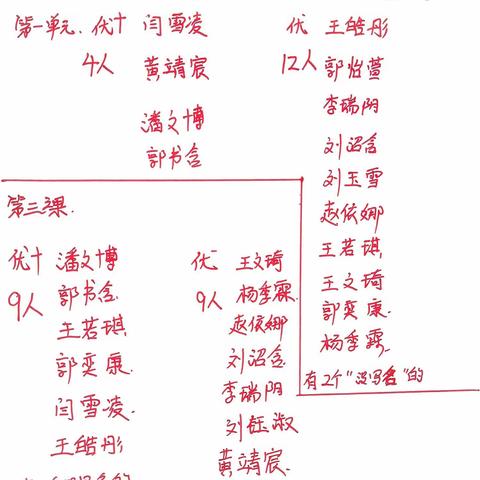 第一单元.优十 闫雪凌
4人 黄靖宸
潘文博
郭书含
优 王皓彤
12人 郭怡萱
李瑞阴
刘沼含
刘玉雪
赵依娜
王若琪
王文琦
郭奕康.
杨季霖.
有2个"没写名"的
第三课.
优十 潘文博
9人 郭书含.
王若琪
郭奕康.
闫雪凌.
王皓彤
优 王文琦
9人 杨季霖.
赵依娜
刘沼含
李瑞阴
刘钰淑
黄靖宸.